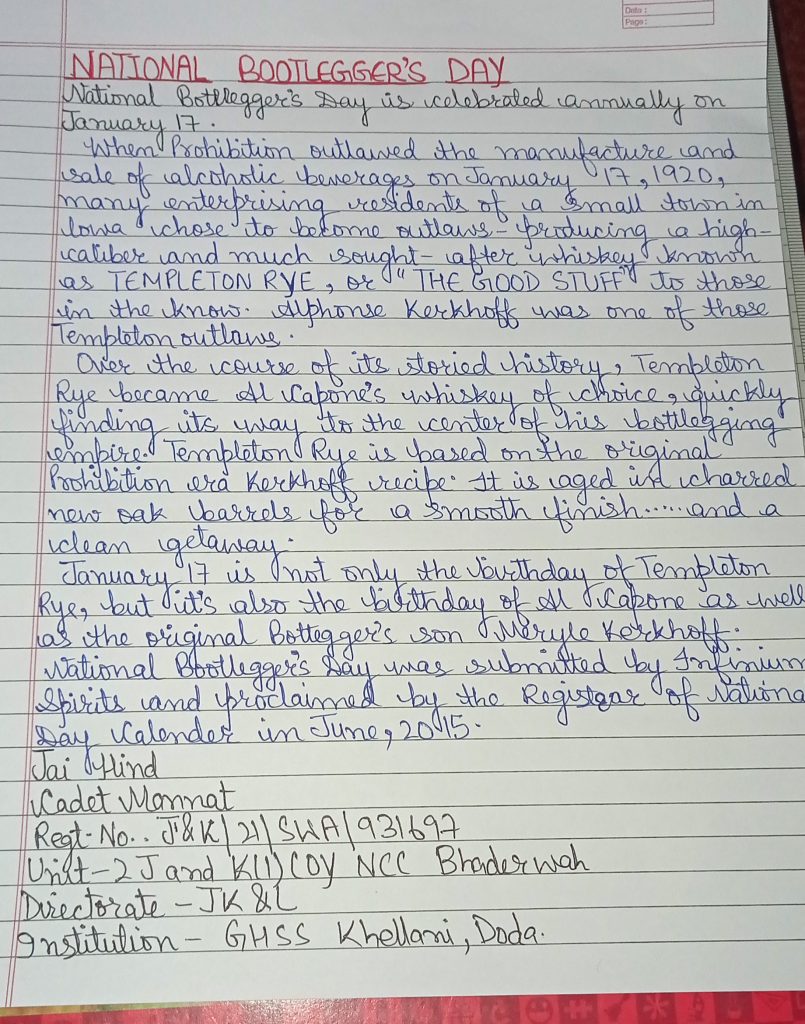 Date:
Page:
NATIONAL BOOTLEGGER'S DAY
National Bottlegger's Day is celebrated annually on
January 17.
When Prohibition outlawed the manufacture and
sale of alcoholic beverages on January 17, 1920,
many enterprising residents of a small town in
Iowa chose to become outlaws - producing a high-
caliber and much sought-after whiskey known
as TEMPLETON RYE, or "THE GOOD STUFF" to those
in the know. Alphonse Kerkhoff was one of those
Templeton outlaws.
Over the course of its storied history, Templeton
Rye became Al Capone's whiskey of choice, quickly
finding its way to the center of his bottlegging
empire. Templeton Rye is based on the original
Prohibition era Kerkhoff recipe. It is aged in charred
new oak barrels for a smooth finish.....and a
clean getaway.
January 17 is not only the birthday of Templeton
Rye, but it's also the birthday of Al Capone as well
as the original Bottegger's son Meryle Kerkhoff.
National Bootlegger's Day was submitted by Infinium
Spirits and proclaimed by the Registrar of Nationa
Day Kalender in June, 2015.
Jai Hind
Cadet Mannat
Regt-No.. J&K/21/SWA/931697
Unit-2 J and K(I) COY NCC Bhaderwah
Directorate - JK &L
Institution - GHSS Khellani, Doda.